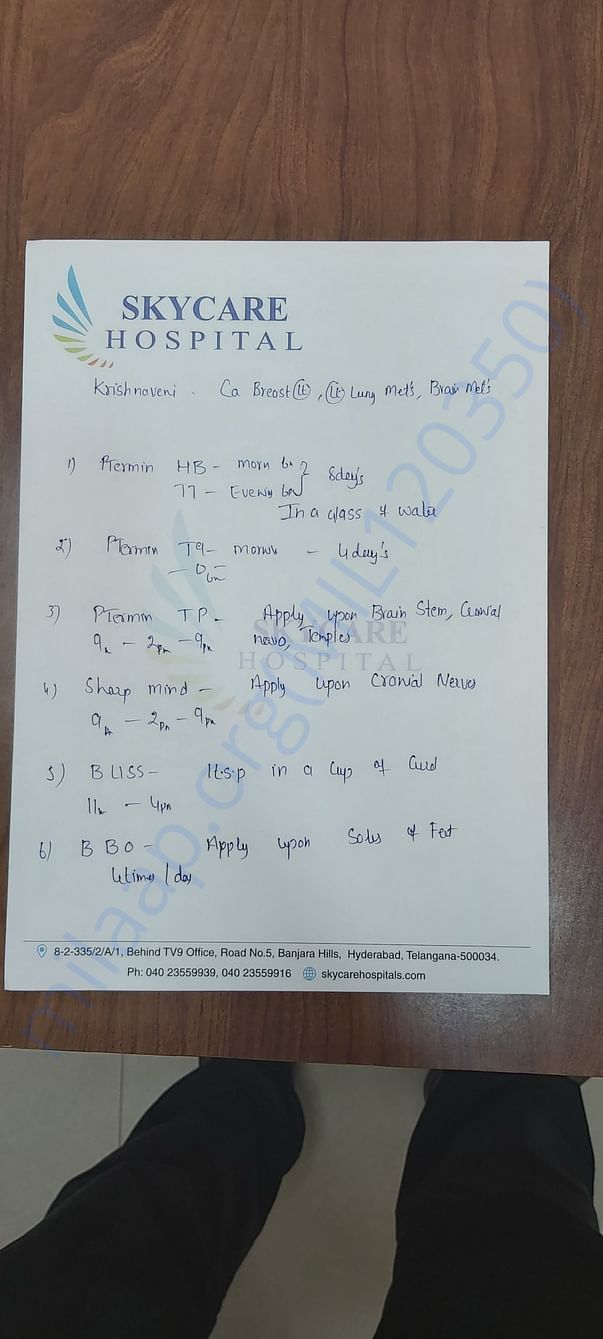 SKYCARE
HOSPITAL
Krishnaveni . Ca Breast (Lt), (Lt) Lung Met's, Brain Met's
1) PTermin HB - morn
8day's
77 - Evenig
In a glass of water
2) PTermin - 4 day's
3) PTermin TP - Apply upon Brain Stem, Cranial
9 - 2pm - 9pm Temples
SKYCARE
HOSPITAL
4) Sharp mind - Apply upon Cranial Nerves
9 - 2pm - 9pm
5) BLISS - 1t.s.p in a Cup of Curd
11 - 4pm
6) BBO - Apply upon Soles of Feet
4times / day
8-2-335/2/A/1, Behind TV9 Office, Road No.5, Banjara Hills, Hyderabad, Telangana-500034.
Ph: 040 23559939, 040 23559916 skycarehospitals.com
milaap.org(MIL1120350)